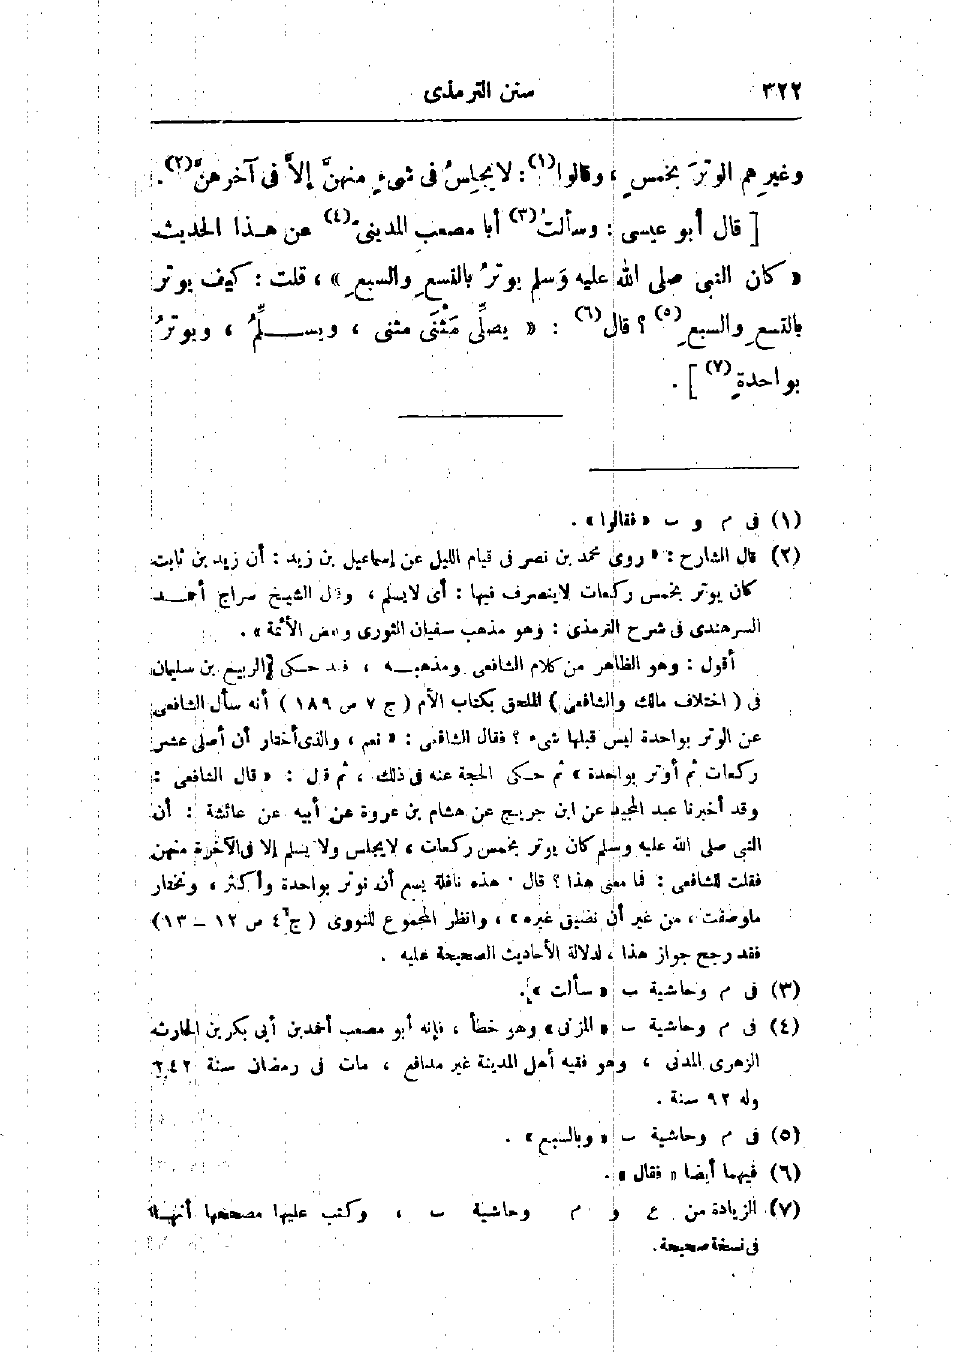 ٣٢٢ سنن الترمذى
وغيرِهم الوترَ بخمسٍ ، وقالوا(١) : لا يجلِسُ فى شىءٍ منهنَّ إلاَّ فى آخرهنَّ(٢).
[ قال أبو عيسى : وسألتُ(٣) أبا مصعبٍ المدينىَّ(٤) عن هـذا الحديث
« كان النبى صلى الله عليه وَسلم يوترُ بالتسعِ والسبعِ » ، قلت : كيف يوتر
بالتسعِ والسبعِ(٥) ؟ قال(٦) : « يصلِّى مَثْنَى مثنى ، ويســلِّمُ ، ويوترُ
بواحدةٍ(٧) ] .
(١) فى م و ب « فقالوا » .
(٢) قال الشارح : « روى محمد بن نصر فى قيام الليل عن إسماعيل بن زيد : أن زيد بن ثابت
كان يوتر بخمس ركعات لا ينصرف فيها : أى لا يسلم ، وقال الشيخ سراج أحمـد
السرهندى فى شرح الترمذى : وهو مذهب سفيان الثورى وبعض الأئمة » .
أقول : وهو الظاهر من كلام الشافعى ومذهبـه ، فـقد حـكى الربيع بن سليمان
فى ( اختلاف مالك والشافعى ) الملحق بكتاب الأم ( ج ٧ ص ١٨٩ ) أنه سأل الشافعى
عن الوتر بواحدة ليس قبلها شىء ؟ فقال الشافعى : « نعم ، والذى أختار أن أصلى عشر
ركعات ثم أوتر بواحدة » ثم حـكى الحجة عنه فى ذلك ، ثم قال : « قال الشافعى :
وقد أخبرنا عبد المجيد عن ابن جريج عن هشام بن عروة عن أبيه عن عائشة : أن
النبى صلى الله عليه وسلم كان يوتر بخمس ركعات ، لا يجلس ولا يسلم إلا فى الآخرة منهن
فقلت للشافعى : فما معنى هذا ؟ قال : هذه نافلة يسع أن نوتر بواحدة وأكثر ، ونختار
ما وصفت ، من غير أن نضيق غيره » ، وانظر المجموع للنووى ( ج ٤ ص ١٢ – ١٣ )
فقد رجح جواز هذا ، لدلالة الأحاديث الصحيحة عليه .
(٣) فى م وحاشية ب « سألت » .
(٤) فى م وحاشية ب « المزنى » وهو خطأ ، فإنه أبو مصعب أحمد بن أبى بكر بن الحارث
الزهرى المدنى ، وهو فقيه أهل المدينة غير مدافع ، مات فى رمضان سنة ٢٤٢
وله ٩٢ سنة .
(٥) فى م وحاشية ب « وبالسبع » .
(٦) فيهما أيضا « فقال » .
(٧) الزيادة من ع و م وحاشية ب ، وكتب عليها مصححها أنهـا
فى نسخة صحيحة .